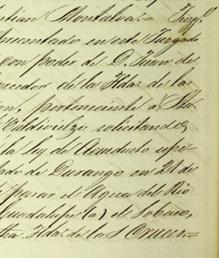 tian Montalva.= Juzg.
presentado en este Juzgado
con poder del D. Juan de
de la Hda. de la
perteneciente a
Valdivielzo solicitando
la ley de Acueducto
ado de Durango en 21 de
pasar el Agua del Rio
Guadalupe (a) el Sobaco,
Hda. de las Cruces=